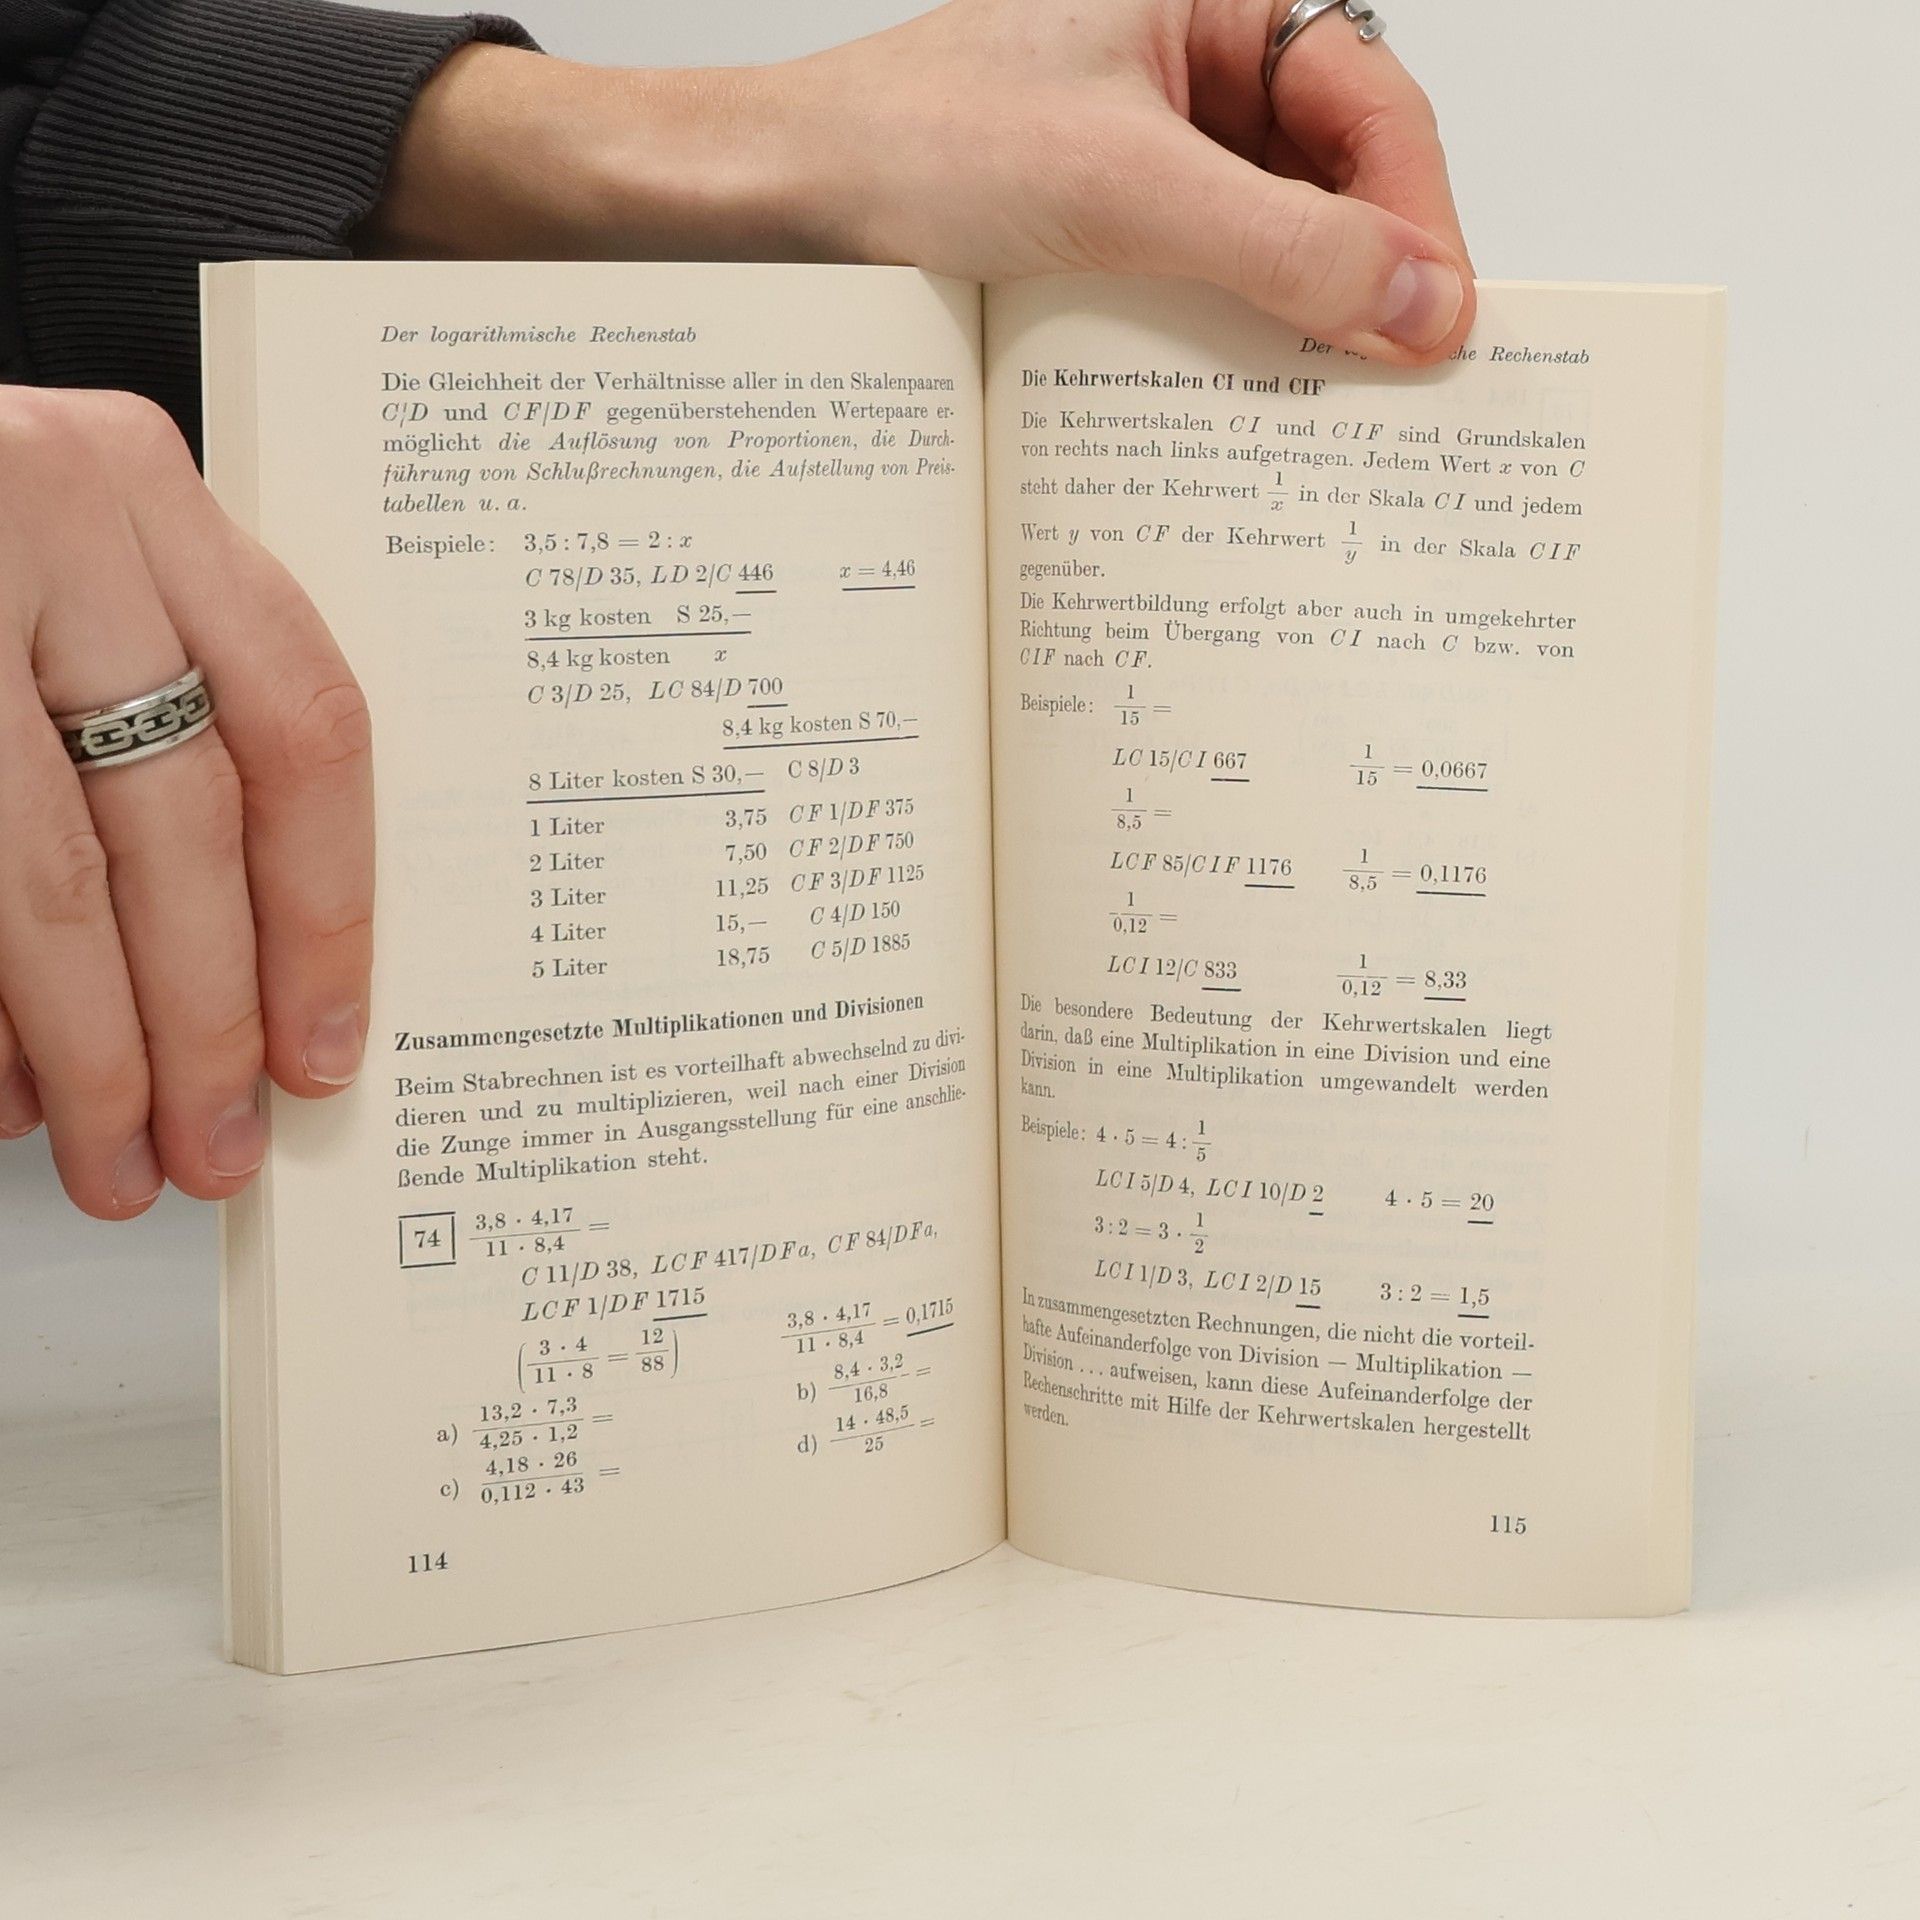 Der logarithmische Rechenstab
Die Gleichheit der Verhältnisse aller in den Skalenpaaren
C/D und CF/DF gegenüberstehenden Wertepaare er-
möglicht die Auflösung von Proportionen, die Durch-
führung von Schlußrechnungen, die Aufstellung von Preis-
tabellen u. a.
Beispiele: 3,5 : 7,8 = 2 : x
C 78/D 35, LD 2/C 446 x = 4,46
3 kg kosten S 25,—
8,4 kg kosten x
C 3/D 25, LC 84/D 700
8,4 kg kosten S 70,—
8 Liter kosten S 30,— C 8/D 3
1 Liter 3,75 CF 1/DF 375
2 Liter 7,50 CF 2/DF 750
3 Liter 11,25 CF 3/DF 1125
4 Liter 15,— C 4/D 150
5 Liter 18,75 C 5/D 1885
Zusammengesetzte Multiplikationen und Divisionen
Beim Stabrechnen ist es vorteilhaft abwechselnd zu divi-
dieren und zu multiplizieren, weil nach einer Division
die Zunge immer in Ausgangsstellung für eine anschlie-
ßende Multiplikation steht.
74 3,8 · 4,17 / 11 · 8,4 =
C 11/D 38, LCF 417/DFa, CF 84/DFa,
LCF 1/DF 1715
(3 · 4 / 11 · 8 = 12 / 88) 3,8 · 4,17 / 11 · 8,4 = 0,1715
a) 13,2 · 7,3 / 4,25 · 1,2 = b) 8,4 · 3,2 / 16,8 =
c) 4,18 · 26 / 0,112 · 43 = d) 14 · 48,5 / 25 =
114
Der Rechenstab
Die Kehrwertskalen CI und CIF
Die Kehrwertskalen CI und CIF sind Grundskalen
von rechts nach links aufgetragen. Jedem Wert x von C
steht daher der Kehrwert 1/x in der Skala CI und jedem
Wert y von CF der Kehrwert 1/y in der Skala CIF
gegenüber.
Die Kehrwertbildung erfolgt aber auch in umgekehrter
Richtung beim Übergang von CI nach C bzw. von
CIF nach CF.
Beispiele: 1/15 =
LC 15/CI 667 1/15 = 0,0667
1/8,5 =
LCF 85/CIF 1176 1/8,5 = 0,1176
1/0,12 =
LCI 12/C 833 1/0,12 = 8,33
Die besondere Bedeutung der Kehrwertskalen liegt
darin, daß eine Multiplikation in eine Division und eine
Division in eine Multiplikation umgewandelt werden
kann.
Beispiele: 4 · 5 = 4 : 1/5
LCI 5/D 4, LCI 10/D 2 4 · 5 = 20
3 : 2 = 3 · 1/2
LCI 1/D 3, LCI 2/D 15 3 : 2 = 1,5
In zusammengesetzten Rechnungen, die nicht die vorteil-
hafte Aufeinanderfolge von Division — Multiplikation —
Division ... aufweisen, kann diese Aufeinanderfolge der
Rechenschritte mit Hilfe der Kehrwertskalen hergestellt
werden.
115